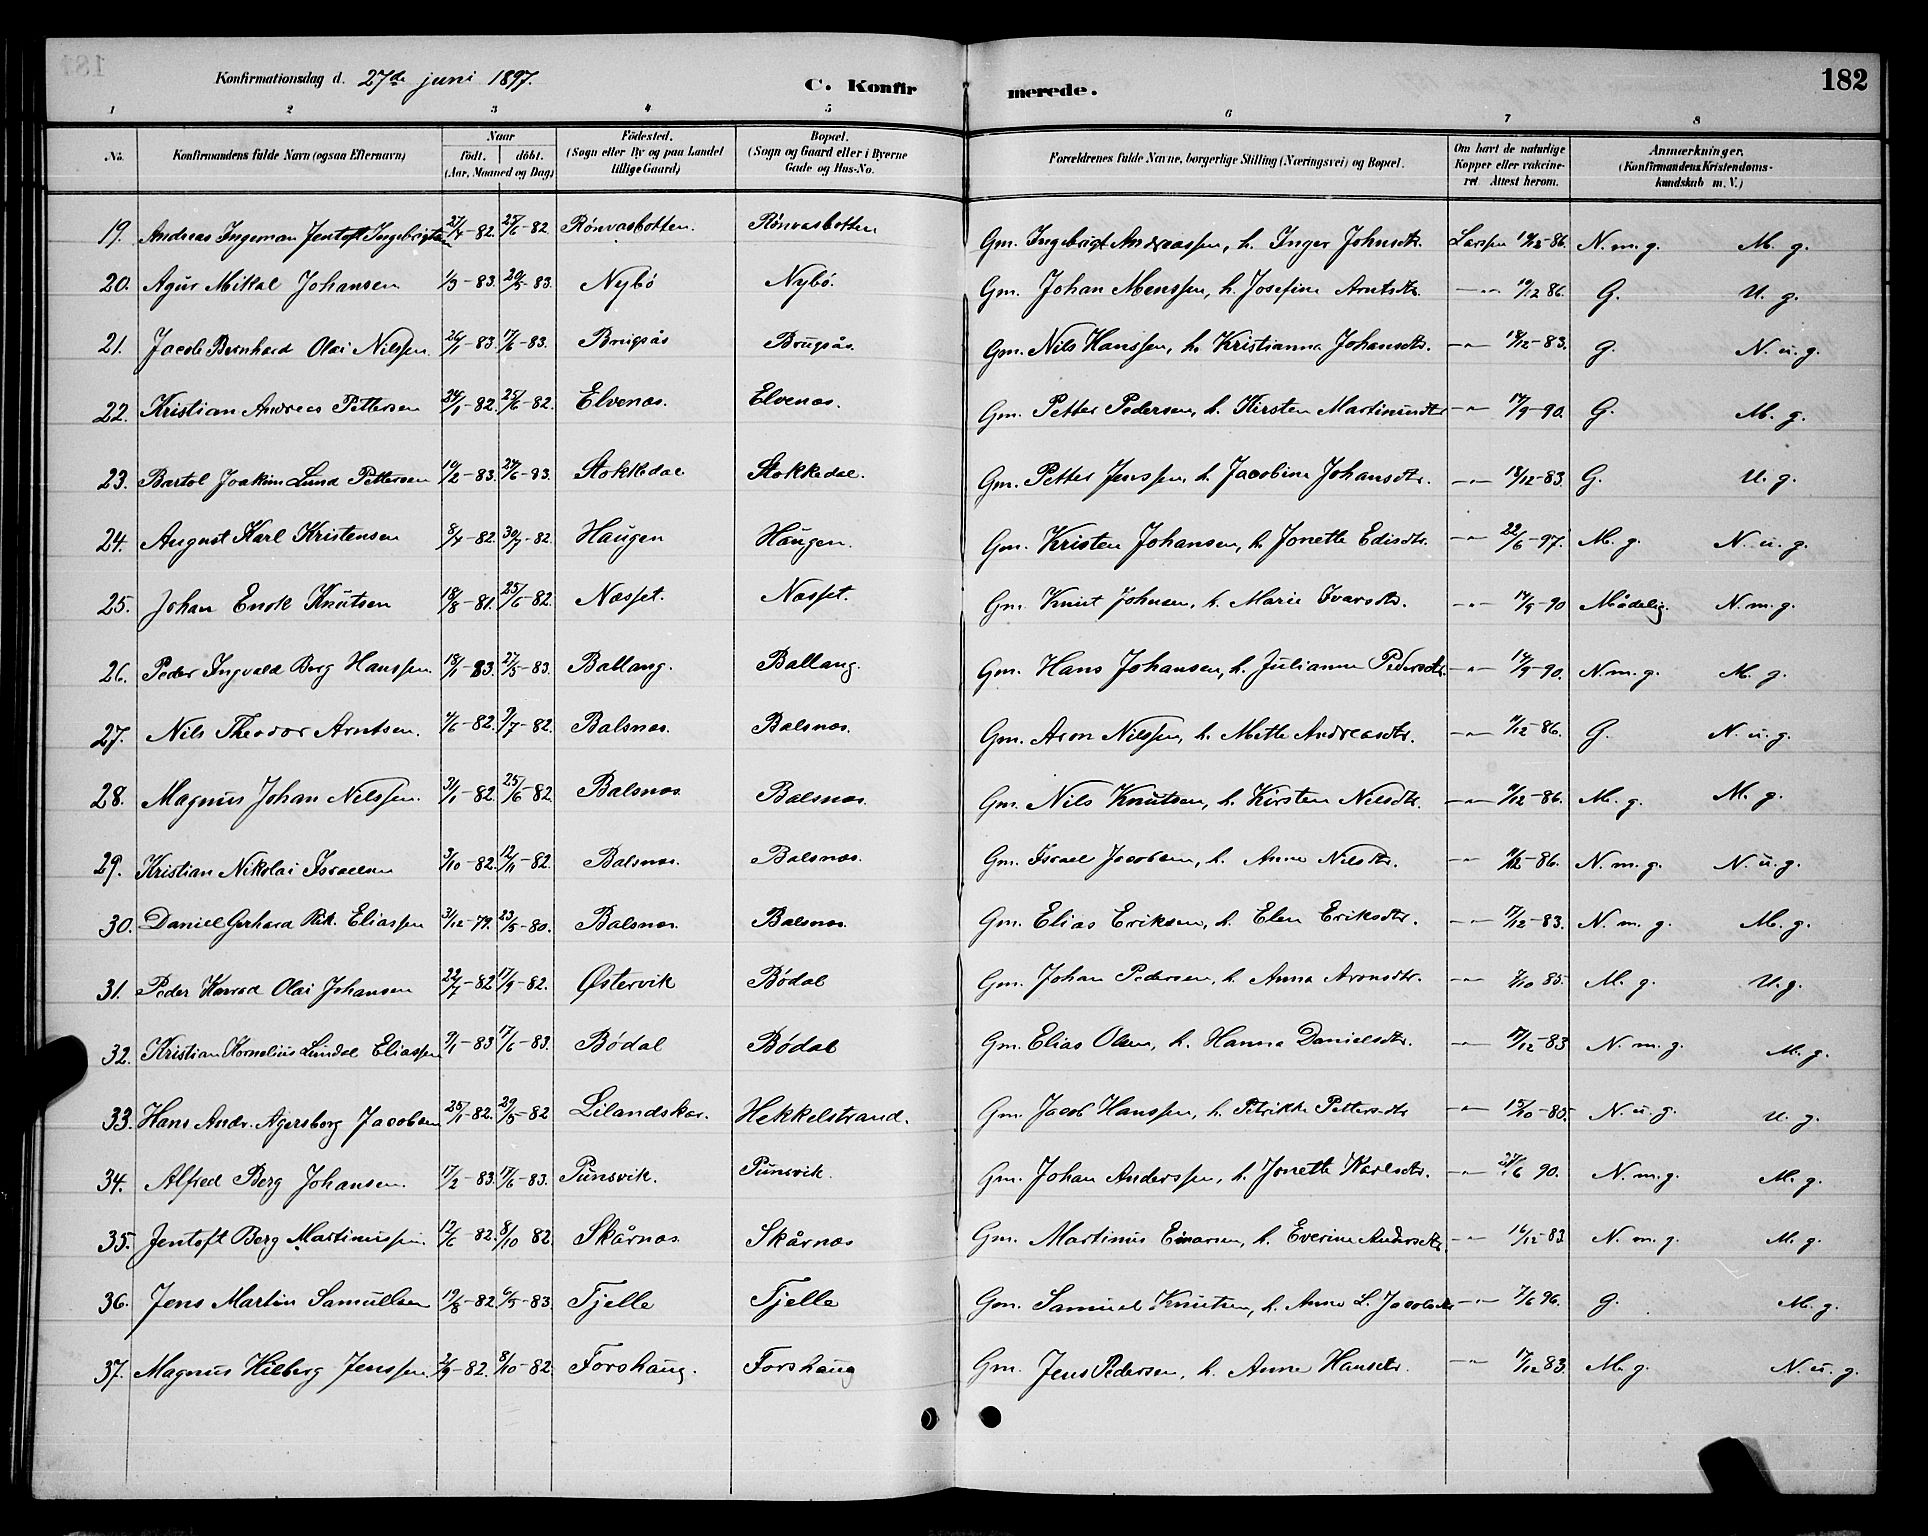 Konfirmationsdag d. 27de juni 1897.
C. Konfirmerede.
182
1 2 3 4 5 6 7 8
No. Konfirmandens fulde Navn (ogsaa Efternavn) Naar født. døbt. (Aar, Maaned og Dag) Fødested. (Sogn eller By og paa Landet tillige Gaard) Bopæl. (Sogn og Gaard eller i Byerne Gade og Hus-No. Forældrenes fulde Navne, borgerlige Stilling (Næringsvei) og Bopæl. Om havt de naturlige Kopper eller vakcineret Attest herom. Anmærkninger, (Konfirmandens Kristendomskundskab m. V.)
19. Andreas Ingeman Jentoft Ingebrigtsen 27/4-82. 25/6-82 Rönvasbotten. Rönvasbotten Gm. Ingebrigt Andreassen, h. Inger Johnsdtr. Larsen -86. N. m. g. M. g.
20. Agur Mikal Johansen 1/3-83. 20/5-83. Nybö Nybö. Gm. Johan Menssen, h. Josefine Arntsdtr. -"- 19/12 86. G. U. g.
21. Jacob Bernhard Olai Nilssen. 26/1-83. 17/6-83. Brugsås Brugsås. Gm. Nils Hanssen, h. Kristianna Johansdtr. -"- 18/12-83. G. N. u. g.
22. Kristian Andreas Pettersen 24/1-82. 25/6-82. Elvenæs. Elvenæs. Gm. Petter Pedersen, h. Kirsten Martinusdtr -"- 17/9-90. G. M. g.
23. Bartol Joakim Lund Pettersen 10/2-83. 24/6-83. Stokkedal Stokkedal. Gm. Petter Jenssen, h. Jacobine Johansdtr. -"- 18/12-83. G. U. g.
24. August Karl Kristensen 8/4-82. 30/7-82. Haugen Haugen. Gm. Kristen Johansen, h. Jonette Edisdtr. -"- 22/6-97. M. g. N. u. g.
25. Johan Enok Knutsen 18/8-81. 25/6-82. Næsset. Næsset. Gm. Knut Johnsen, h. Marie Ivarsdtr. -"- 17/9-90 Mådelig. N. m. g.
26. Peder Ingvald Berg Hanssen. 18/1-83. 27/5-83. Ballang. Ballang. Gm. Hans Johansen, h. Julianne Pedersdtr. -"- 17/9-90. N. m. g. M. g.
27. Nils Theodor Arntsen. 4/6-82. 9/7-82. Balsnæs. Balsnæs. Gm. Aron Nilssen, h. Mette Andreasdtr. -"- /12-86. G. N. u. g.
28. Magnus Johan Nilssen. 31/1-82. 25/6-82. Balsnæs. Balsnæs. Gm. Nils Knutsen, h. Kirsten Nilsdtr. -"- /12-86. M. g. M. g.
29. Kristian Nikolai Israelsen 3/10-82. 12/11-82. Balsnæs. Balsnæs. Gm. Israel Jacobsen, h. Anne Nilsdtr. -"- /12-86. N. m. g. N. u. g.
30. Daniel Gerhard Rik. Eliassen 31/12-79. 23/5-80. Balsnæs. Balsnæs. Gm. Elias Eriksen, h. Elen Eriksdtr. -"- 17/12-83. N. m. g. M. g.
31. Peder Konrad Olai Johansen 22/7-82 17/9-82. Østervik Bödal Gm. Johan Pedersen, h. Anna Aronsdtr. -"- /10 85. M. g. U. g.
32. Kristian Kornelius Lundal Eliassen 9/1-83 17/6-83. Bödal Bödal Gm. Elias Olsen, h. Hanna Danielsdtr. -"- 17/12-83 N. m. g. M. g.
33. Hans Andr. Agersborg Jacobsen 25/1-82. 29/5-82 Lilandskar. Hekkelstrand. Gm. Jacob Hanssen, h. Petrikke Pettersdtr -"- 15/10-85. N. u. g. U. g.
34. Alfred Berg Johansen. 17/2-83. 17/6-83. Punsvik. Punsvik. Gm. Johan Anderssen, h. Jonette Karlsdtr. -"- /6 90. N. m. g. M. g.
35. Jentoft Berg Martinussen. 12/6-82. 8/10 82. Skårnæs Skårnæs Gm. Martinus Einarsen, h. Everine Andersdtr. -"- 16/12-83. N. m. g. M. g.
36. Jens Martin Samuelsen 19/8-82. 6/5-83. Tjelle Tjelle Gm. Samuel Knutsen, h. Anne L. Jacobsdtr -"- 7/6 96. G. M. g.
37. Magnus Hilberg Jenssen. 2/9-82. 8/10-82. Forshaug. Forshaug Gm. Jens Pedersen, h. Anne Hansdtr. -"- 17/12 83. M. g. N. u. g.